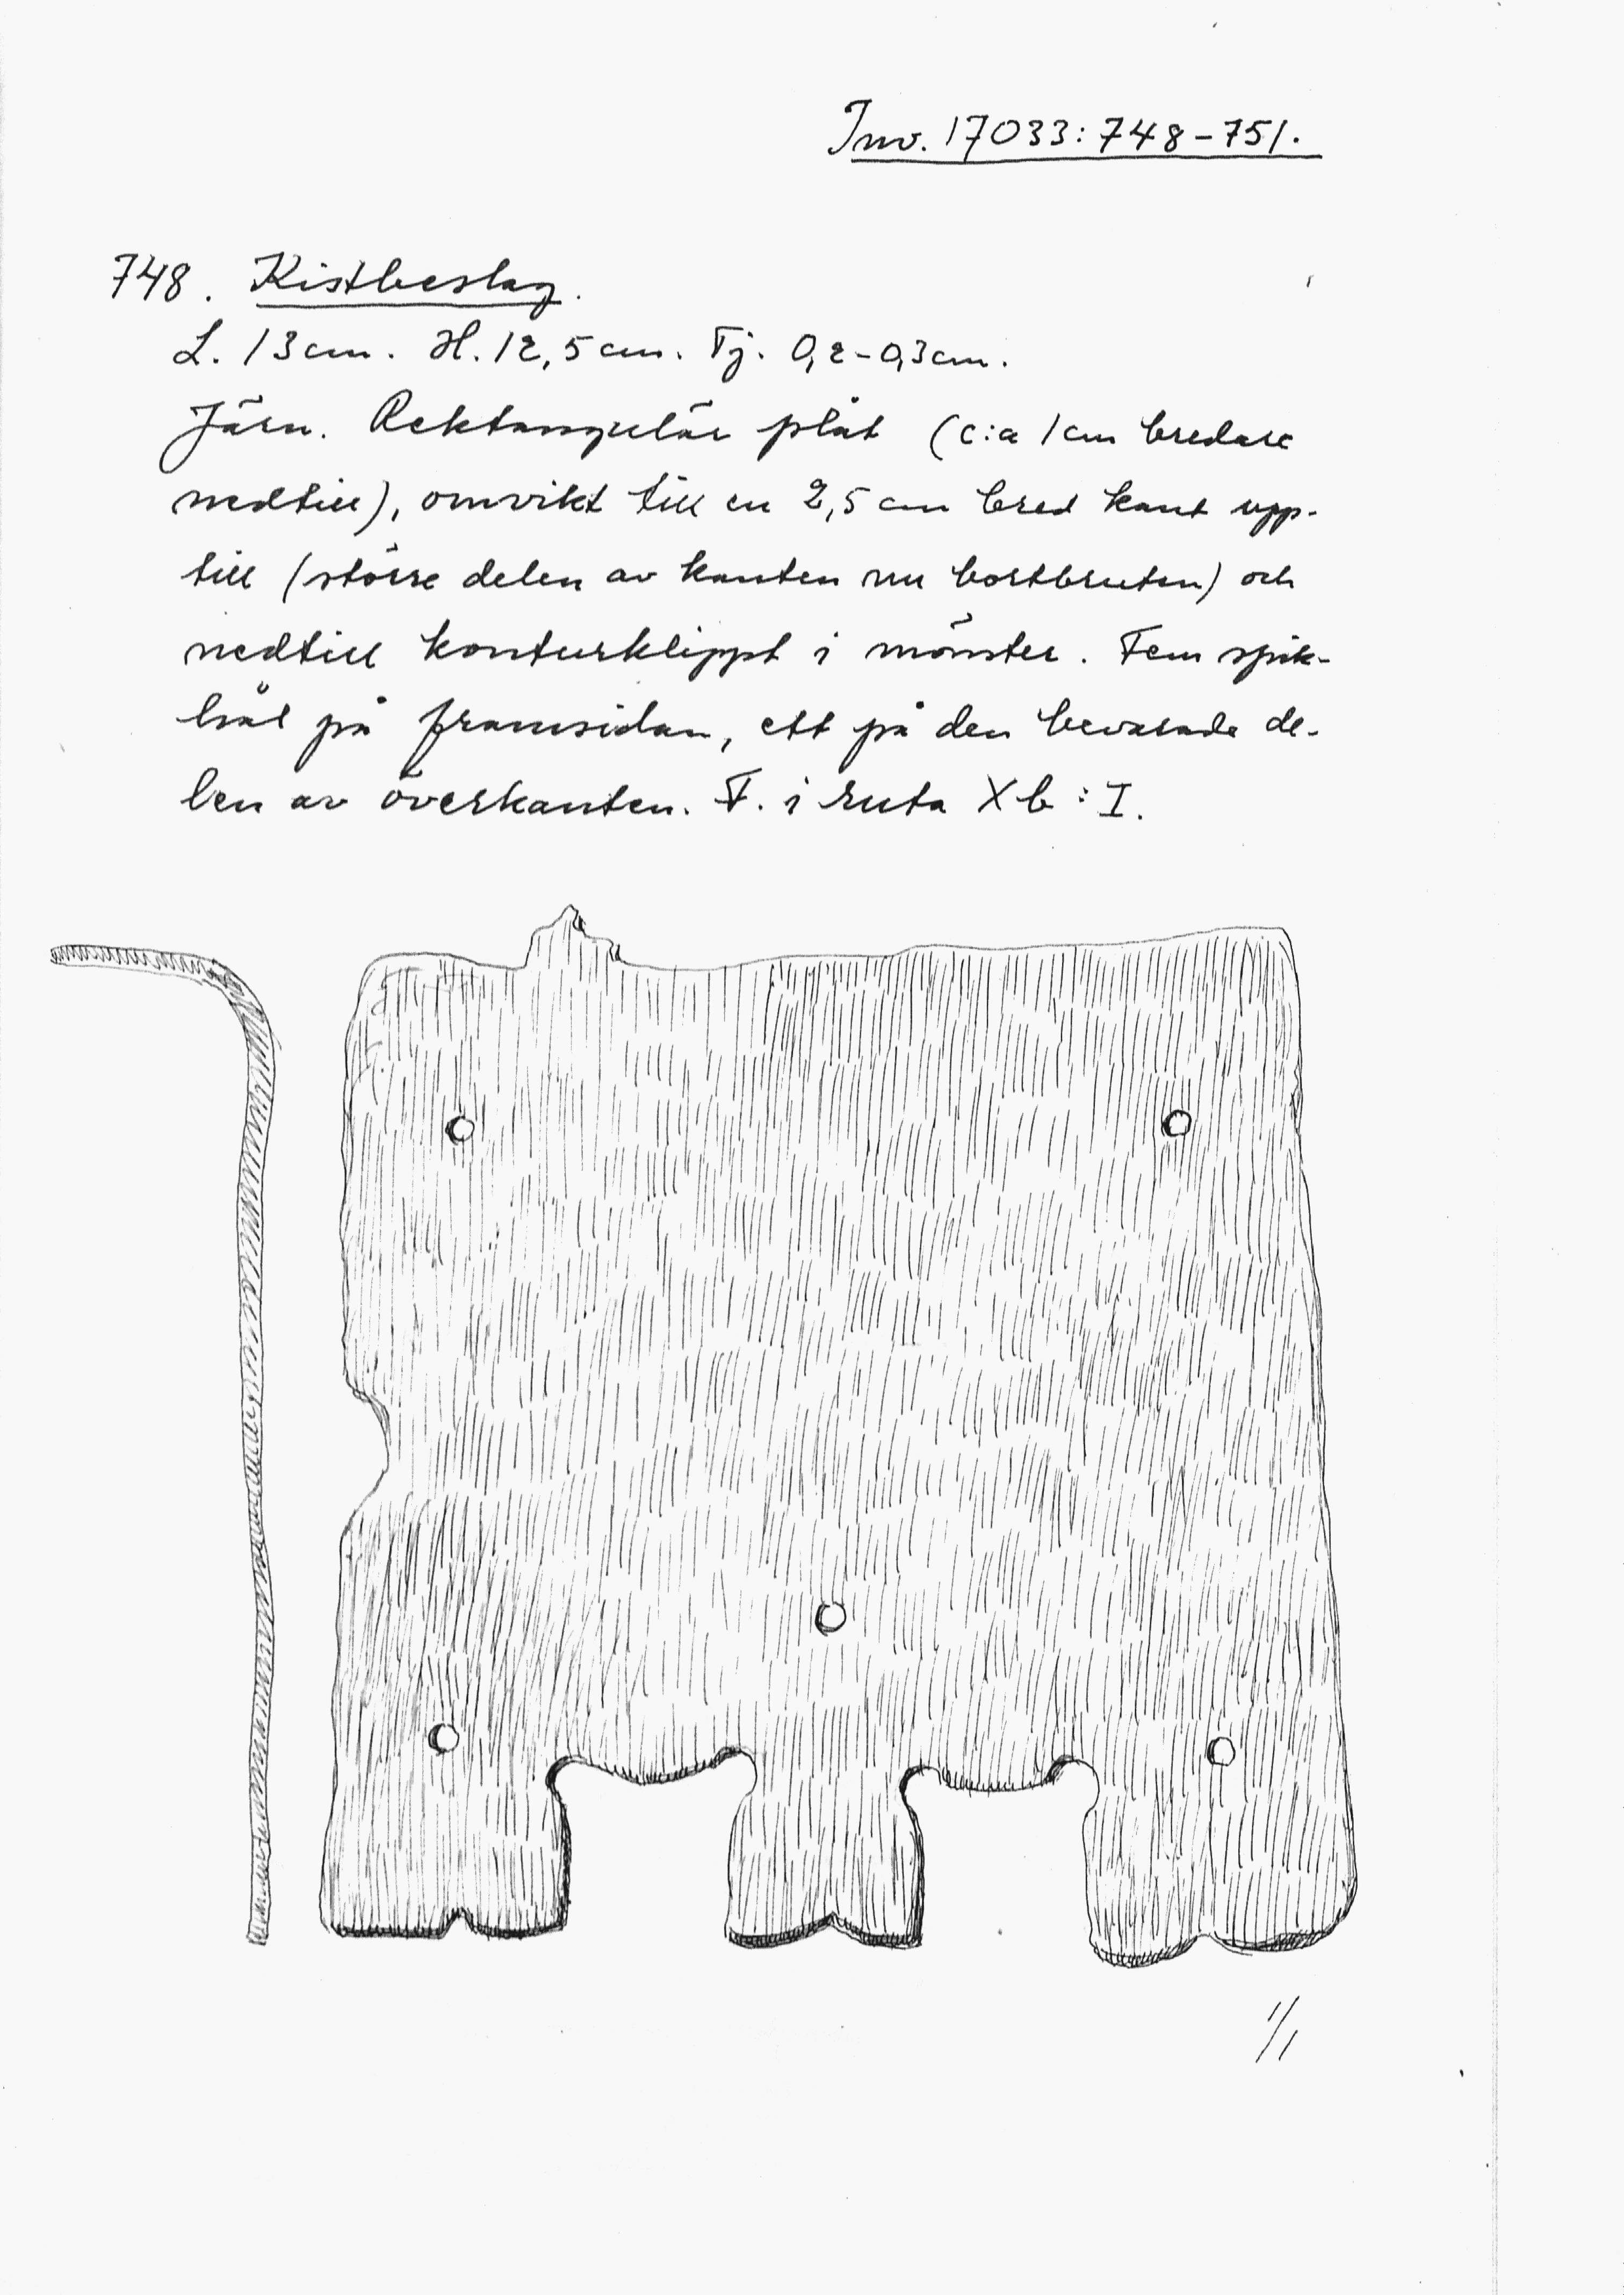 Inv. 17033:748-751.
748. Kistbeslag.
L. 13cm. H. 12,5cm. Tj. 0,2-0,3cm.
Järn. Rektangulär plåt (c:a 1cm bredare
nedtill), omvikt till en 2,5 cm bred kant upp-
till (större delen av kanten nu bortbruten) och
nedtill konturklippt i mönster. Fem spik-
hål på framsidan, ett på den bevarade de-
len av överkanten. F. i ruta Xb:I.
1/1